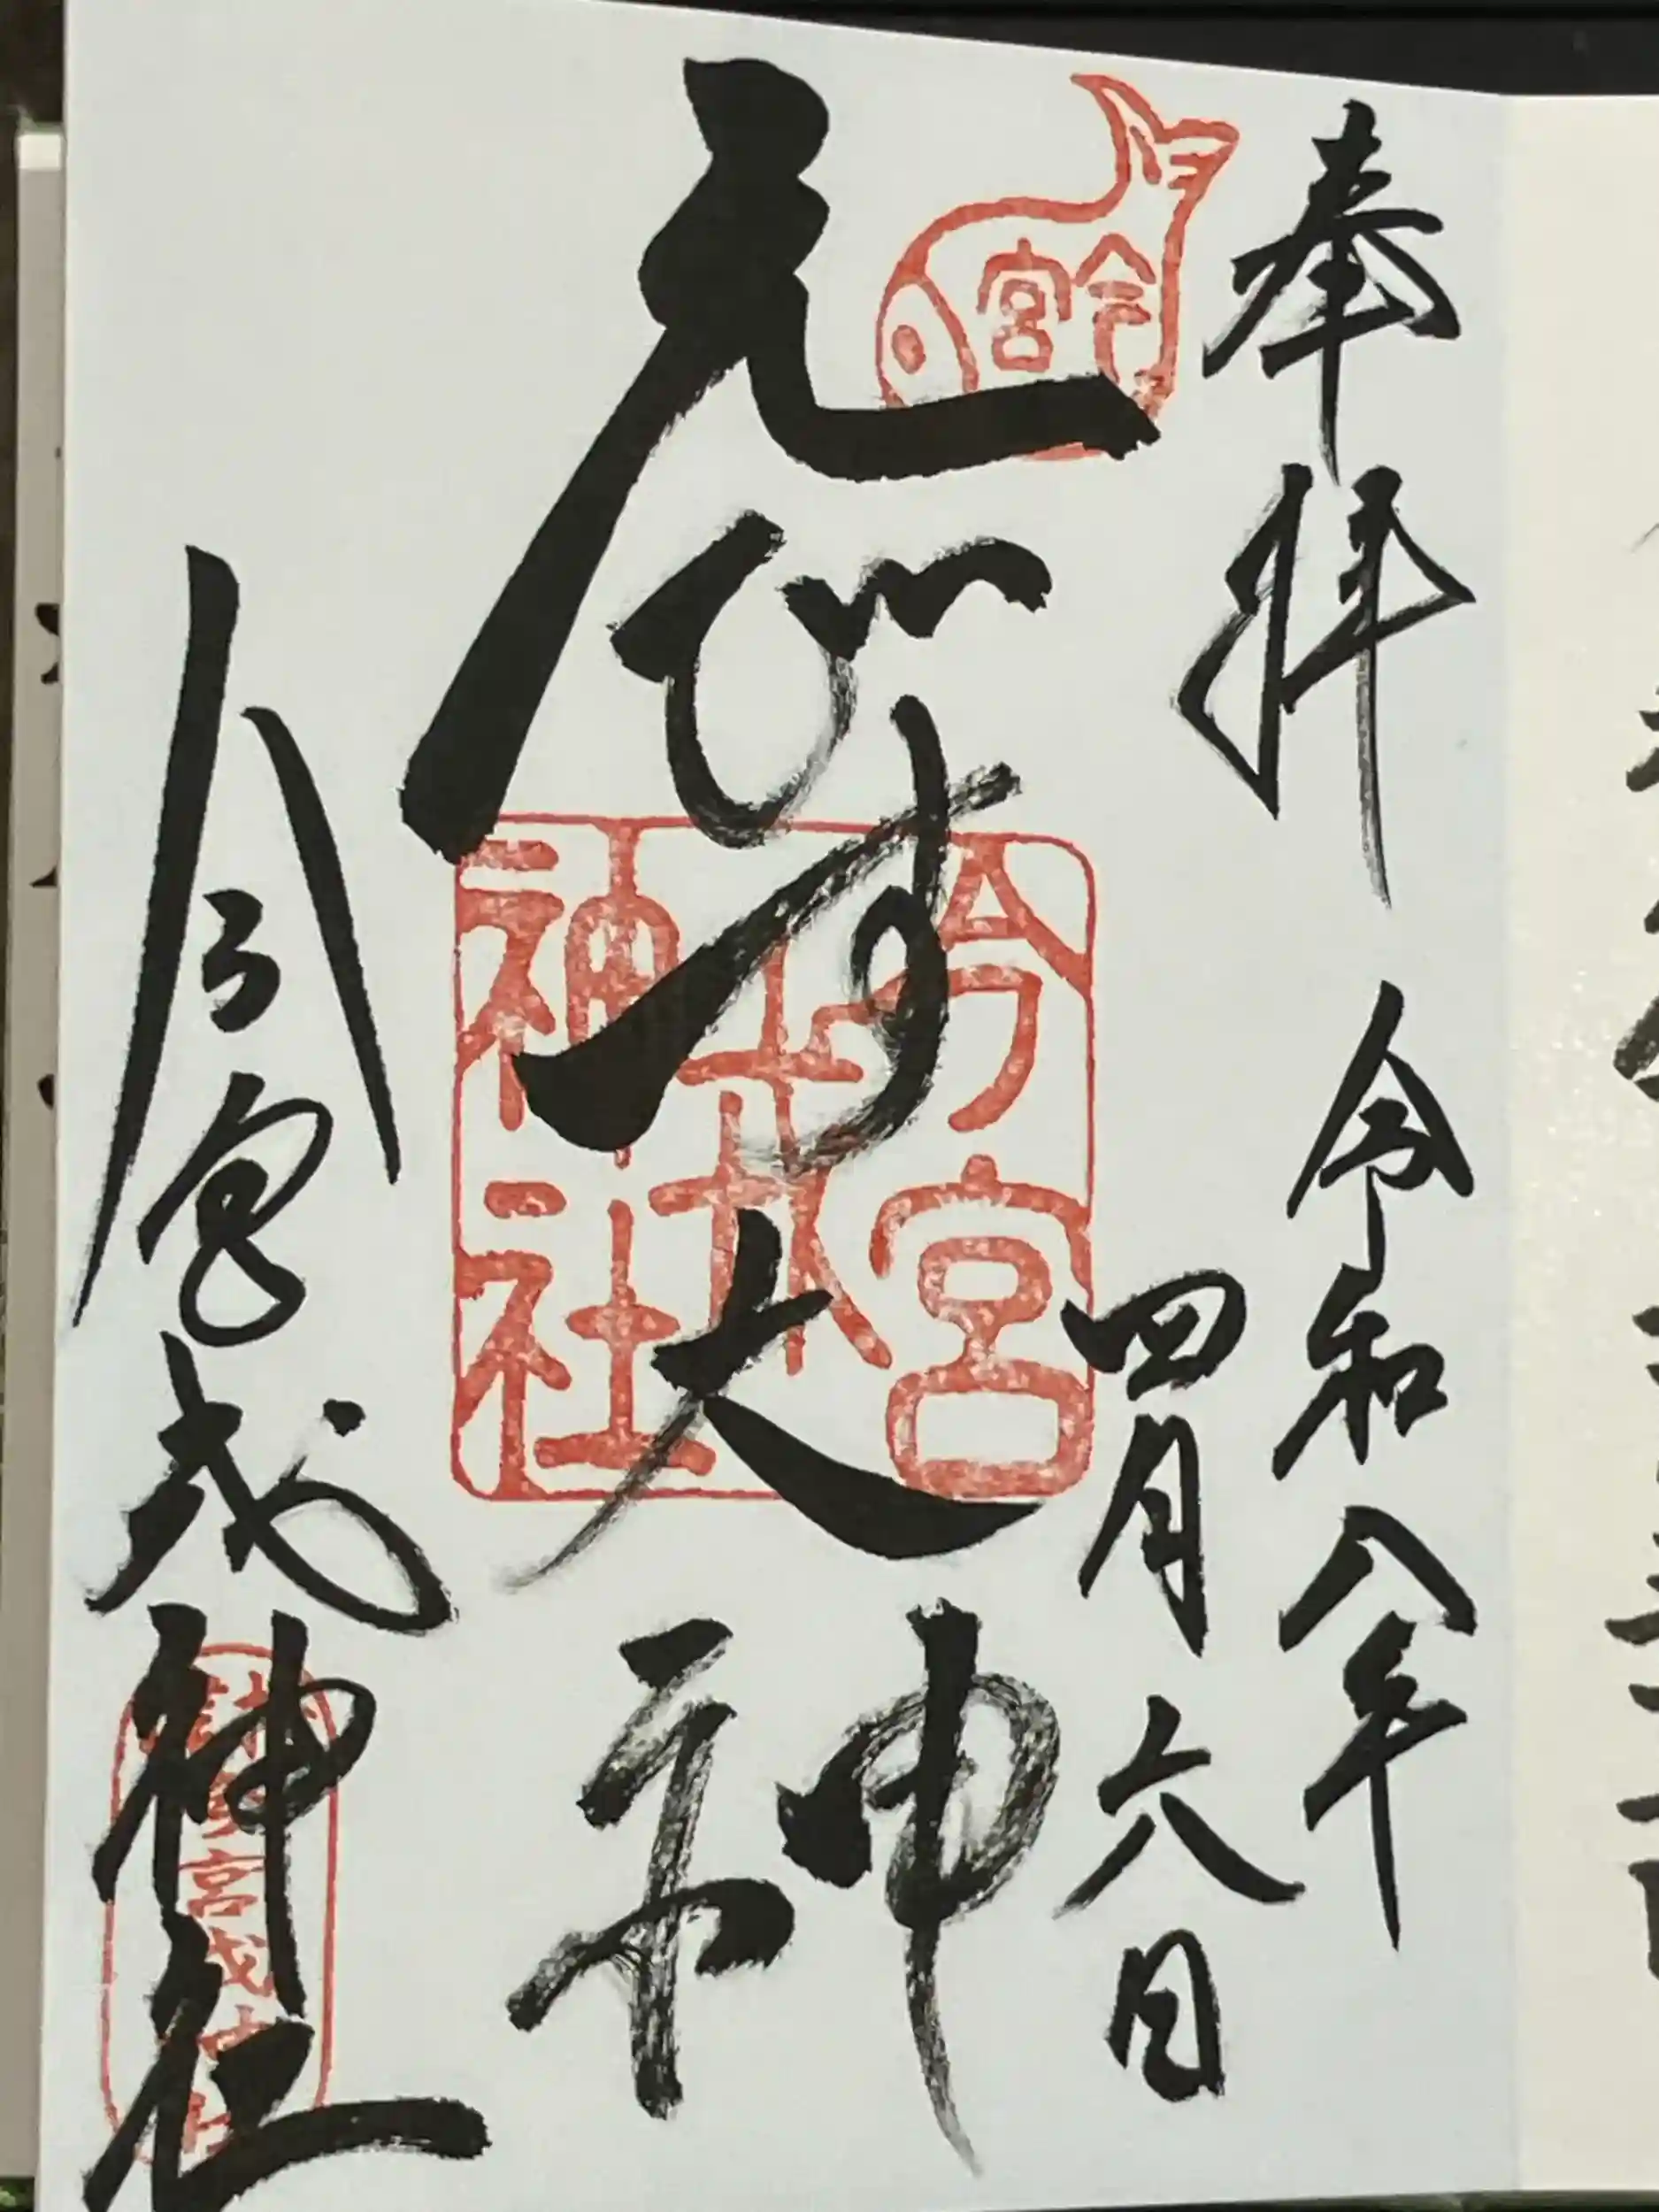 奉拝
令和八年
四月六日
今宮
えびす大神
今宮
戎
神社
今宮戎神社